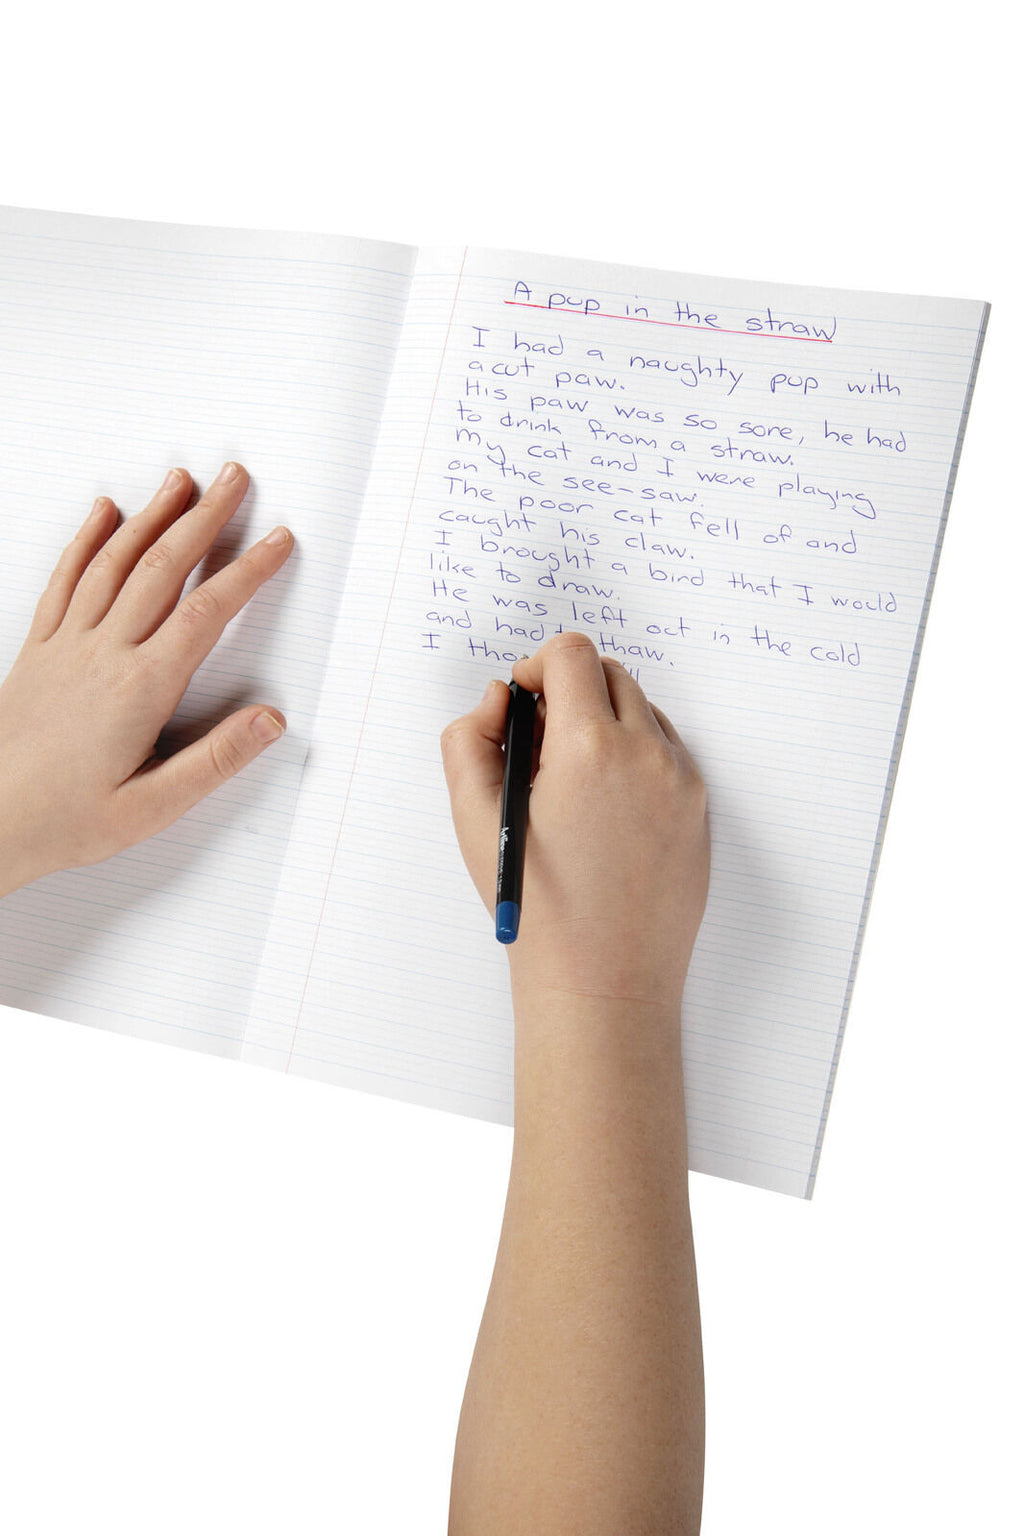 A pup in the straw
I had a naughty pup with
a cut paw.
His paw was so sore, he had
to drink from a straw.
My cat and I were playing
on the see-saw.
The poor cat fell of and
caught his claw.
I brought a bird that I would
like to draw.
He was left out in the cold
and had thaw.
I
Artline